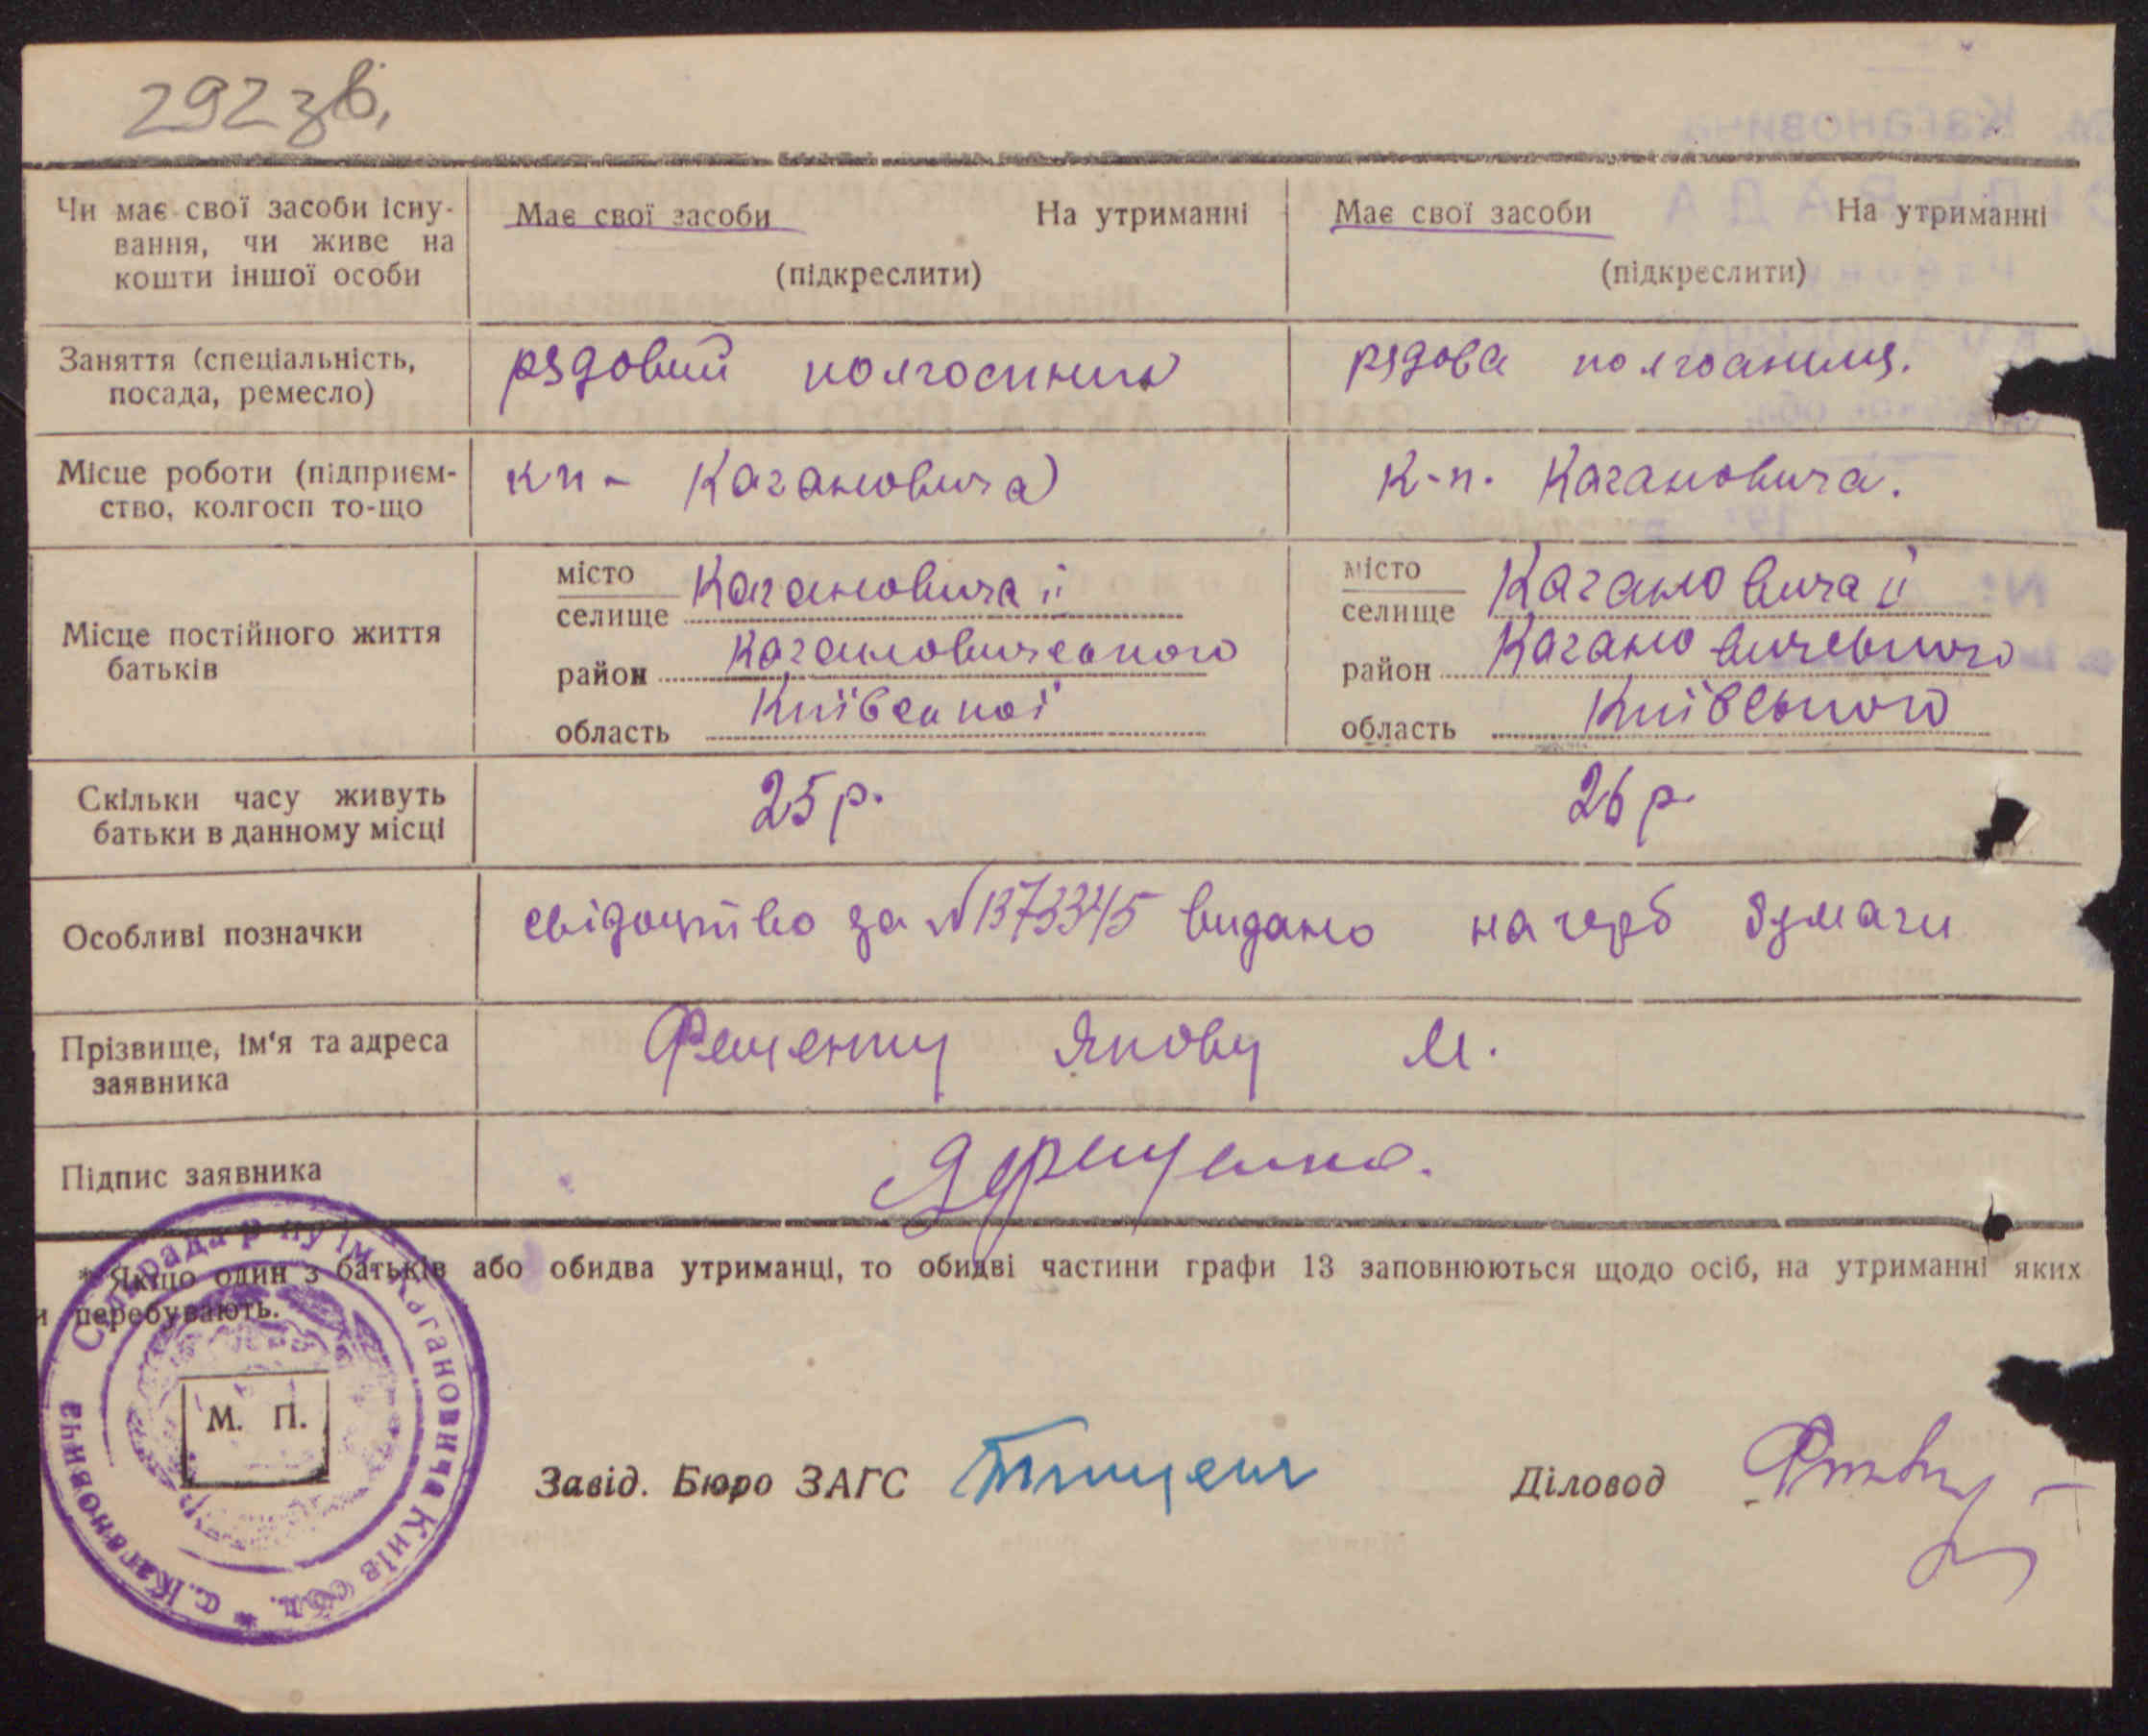 292 зв.
Чи має свої засоби існу-
вання, чи живе на
кошти іншої особи
Має свої засоби На утриманні
(підкреслити)
Має свої засоби На утриманні
(підкреслити)
Заняття (спеціальність,
посада, ремесло)
рядовий колгоспник
рядова колгоспниця.
Місце роботи (підприєм-
ство, колгосп то-що
к-п - Кагановича
к-п. Кагановича.
Місце постійного життя
батьків
місто
селище Кагановича ІІ
район Кагановичевского
область Київської
місто
селище Кагановича ІІ
район Кагановичевського
область Київського
Скільки часу живуть
батьки в данному місці
25 р.
26 р.
Особливі позначки
свідоцтво за № 1373345 видано на герб бумаги
Прізвище, ім'я та адреса
заявника
Фещенку Якову М.
Підпис заявника
ЯФещенко.
* Якщо один з батьків або обидва утриманці, то обидві частини графи 13 заповнюються щодо осіб, на утриманні яких
и перебувають.
Сільрада р-ну ім. Кагановича Київ обл. * с. Кагановича
М. П.
Завід. Бюро ЗАГС
Діловод